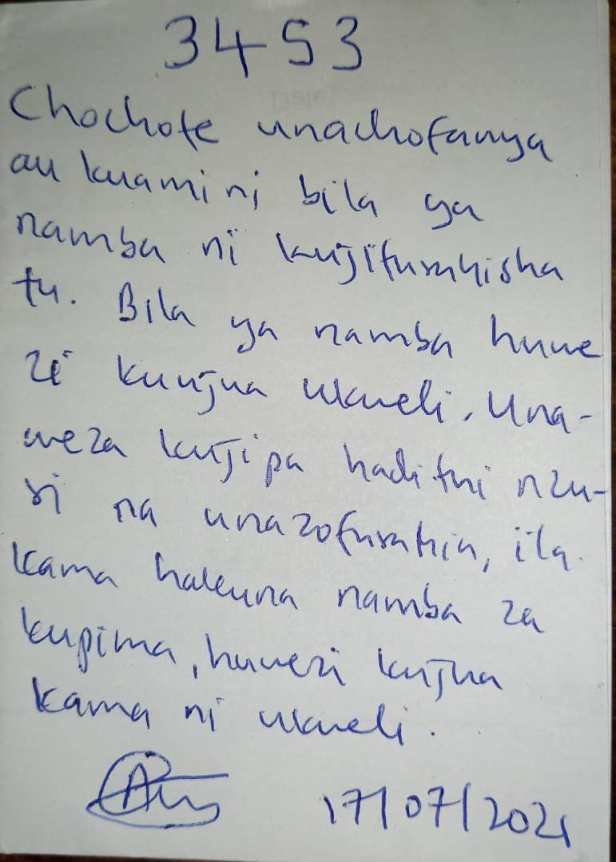 3453
Chochote unachofanya
au kuamini bila ya
namba ni kujifurahisha
tu. Bila ya namba huwe
zi kuujua ukweli. Una-
weza kujipa hadithi nzu-
ri na unazofurahia, ila
kama hakuna namba za
kupima, huwezi kujua
kama ni ukweli.
17/07/2021